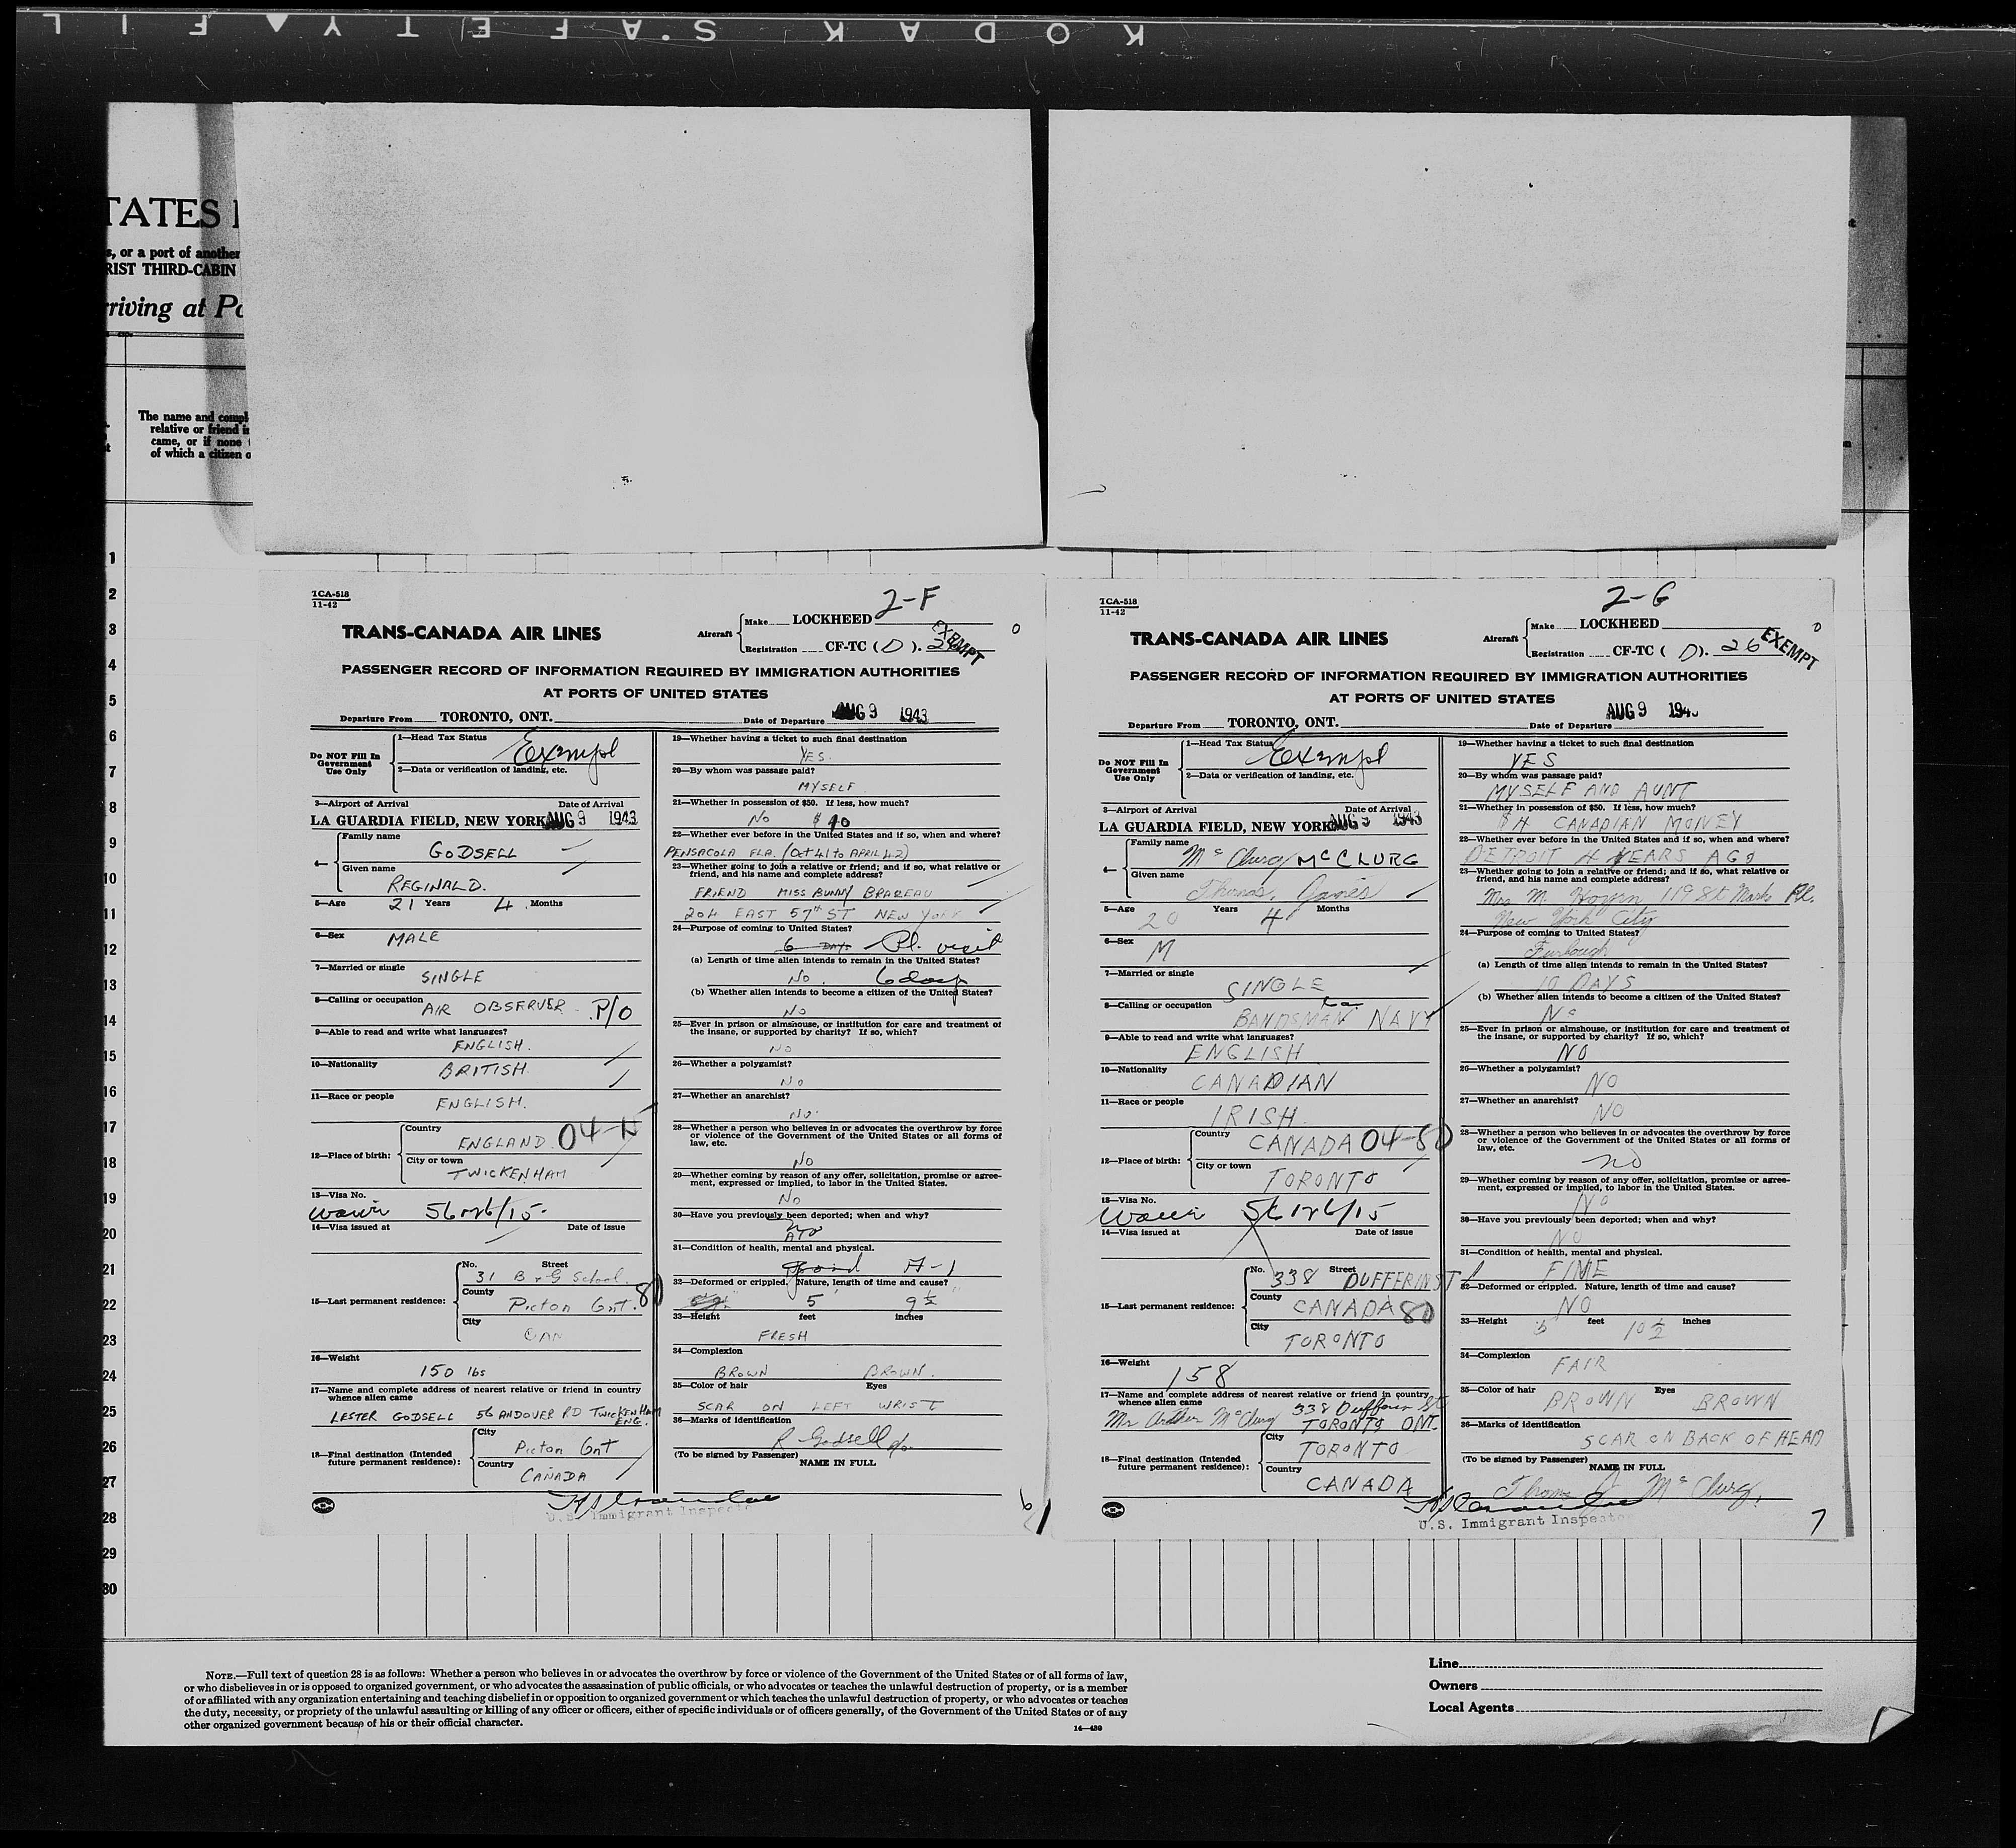 KODAK SAFETY FIL
TATES
s, or a port of another
RIST THIRD-CABIN
riving at Po
The name and compl
relative or friend i
came, or if none
of which a citizen o
1
2
3
4
5
6
7
8
9
10
11
12
13
14
15
16
17
18
19
20
21
22
23
24
25
26
27
28
29
30
TCA-518
11-42
2-F
TRANS-CANADA AIR LINES
Aircraft
Make LOCKHEED
Registration CF-TC (D).
EXEMPT
PASSENGER RECORD OF INFORMATION REQUIRED BY IMMIGRATION AUTHORITIES
AT PORTS OF UNITED STATES
Departure From TORONTO, ONT. Date of Departure AUG 9 1943
Do NOT Fill In
Government
Use Only
1—Head Tax Status Exempt
2—Data or verification of landing, etc.
3—Airport of Arrival Date of Arrival
LA GUARDIA FIELD, NEW YORK AUG 9 1943
4—
Family name
GODSELL
Given name
REGINALD.
5—Age 21 Years 4 Months
6—Sex MALE
7—Married or single
SINGLE
8—Calling or occupation
AIR OBSERVER P/O
9—Able to read and write what languages?
ENGLISH.
10—Nationality BRITISH
11—Race or people ENGLISH.
12—Place of birth:
Country
ENGLAND 04-
City or town
TWICKENHAM
13—Visa No.
14—Visa issued at Date of issue
15—Last permanent residence:
No. Street
31 B & G School
County
Picton Ont. 80
City
CAN
16—Weight
150 lbs
17—Name and complete address of nearest relative or friend in country
whence alien came
LESTER GODSELL 56 ANDOVER RD TWICKENHAM
ENG.
18—Final destination (Intended
future permanent residence):
City
Picton Ont
Country
CANADA
19—Whether having a ticket to such final destination
YES.
20—By whom was passage paid?
MYSELF
21—Whether in possession of $50. If less, how much?
No $ 10
22—Whether ever before in the United States and if so, when and where?
PENSACOLA FLA. (Oct 41 to APRIL 42)
23—Whether going to join a relative or friend; and if so, what relative or
friend, and his name and complete address?
FRIEND MISS BUNNY BRABEAU
204 EAST 57th ST NEW YORK
24—Purpose of coming to United States?
6 DAYS Pl. visit
(a) Length of time alien intends to remain in the United States?
No. 6 days
(b) Whether alien intends to become a citizen of the United States?
No
25—Ever in prison or almshouse, or institution for care and treatment of
the insane, or supported by charity? If so, which?
No
26—Whether a polygamist?
No
27—Whether an anarchist?
No.
28—Whether a person who believes in or advocates the overthrow by force
or violence of the Government of the United States or all forms of
law, etc.
No
29—Whether coming by reason of any offer, solicitation, promise or agree-
ment, expressed or implied, to labor in the United States.
No
30—Have you previously been deported; when and why?
31—Condition of health, mental and physical.
Good A-1
32—Deformed or crippled. Nature, length of time and cause?
5 9½
33—Height feet inches
FRESH
34—Complexion
BROWN BROWN.
35—Color of hair Eyes
SCAR ON LEFT WRIST
36—Marks of identification
R Godsell P/O.
(To be signed by Passenger)
NAME IN FULL
U.S. Immigrant Inspector
6
TCA-518
11-42
2-G
TRANS-CANADA AIR LINES
Aircraft
Make LOCKHEED
Registration CF-TC ( D). 26
EXEMPT
PASSENGER RECORD OF INFORMATION REQUIRED BY IMMIGRATION AUTHORITIES
AT PORTS OF UNITED STATES
Departure From TORONTO, ONT. Date of Departure AUG 9 194
Do NOT Fill In
Government
Use Only
1—Head Tax Status Exempt
2—Data or verification of landing, etc.
3—Airport of Arrival Date of Arrival
LA GUARDIA FIELD, NEW YORK AUG 9 1943
4—
Family name
McClurg McCLURG
Given name
Thomas, James
5—Age 20 Years 4 Months
6—Sex M
7—Married or single
SINGLE
8—Calling or occupation
BANDSMAN NAVY
9—Able to read and write what languages?
ENGLISH
10—Nationality CANADIAN
11—Race or people IRISH.
12—Place of birth:
Country
CANADA 04-80
City or town
TORONTO
13—Visa No.
14—Visa issued at Date of issue
15—Last permanent residence:
No. Street
338 DUFFERIN ST
County
CANADA 80
City
TORONTO
16—Weight
158
17—Name and complete address of nearest relative or friend in country
whence alien came 338 Dufferin St
Mr Arthur McClurg TORONTO ONT.
18—Final destination (Intended
future permanent residence):
City
TORONTO
Country
CANADA
19—Whether having a ticket to such final destination
YES
20—By whom was passage paid?
MYSELF AND AUNT
21—Whether in possession of $50. If less, how much?
$4 CANADIAN MONEY
22—Whether ever before in the United States and if so, when and where?
DETROIT 4 YEARS AGO
23—Whether going to join a relative or friend; and if so, what relative or
friend, and his name and complete address?
Mrs M. 119 St Marks Pl.
New York City
24—Purpose of coming to United States?
Furlough
(a) Length of time alien intends to remain in the United States?
10 DAYS
(b) Whether alien intends to become a citizen of the United States?
No
25—Ever in prison or almshouse, or institution for care and treatment of
the insane, or supported by charity? If so, which?
NO
26—Whether a polygamist?
NO
27—Whether an anarchist?
NO
28—Whether a person who believes in or advocates the overthrow by force
or violence of the Government of the United States or all forms of
law, etc.
no
29—Whether coming by reason of any offer, solicitation, promise or agree-
ment, expressed or implied, to labor in the United States.
NO
30—Have you previously been deported; when and why?
NO
31—Condition of health, mental and physical.
FINE
32—Deformed or crippled. Nature, length of time and cause?
NO
33—Height 5 feet 10½ inches
34—Complexion FAIR
35—Color of hair BROWN Eyes BROWN
36—Marks of identification
SCAR ON BACK OF HEAD
(To be signed by Passenger)
NAME IN FULL
Thomas J. McClurg,
U.S. Immigrant Inspector
7
NOTE.—Full text of question 28 is as follows: Whether a person who believes in or advocates the overthrow by force or violence of the Government of the United States or of all forms of law,
or who disbelieves in or is opposed to organized government, or who advocates the assassination of public officials, or who advocates or teaches the unlawful destruction of property, or is a member
of or affiliated with any organization entertaining and teaching disbelief in or opposition to organized government or which teaches the unlawful destruction of property, or who advocates or teaches
the duty, necessity, or propriety of the unlawful assaulting or killing of any officer or officers, either of specific individuals or of officers generally, of the Government of the United States or of any
other organized government because of his or their official character.
14—430
Line
Owners
Local Agents